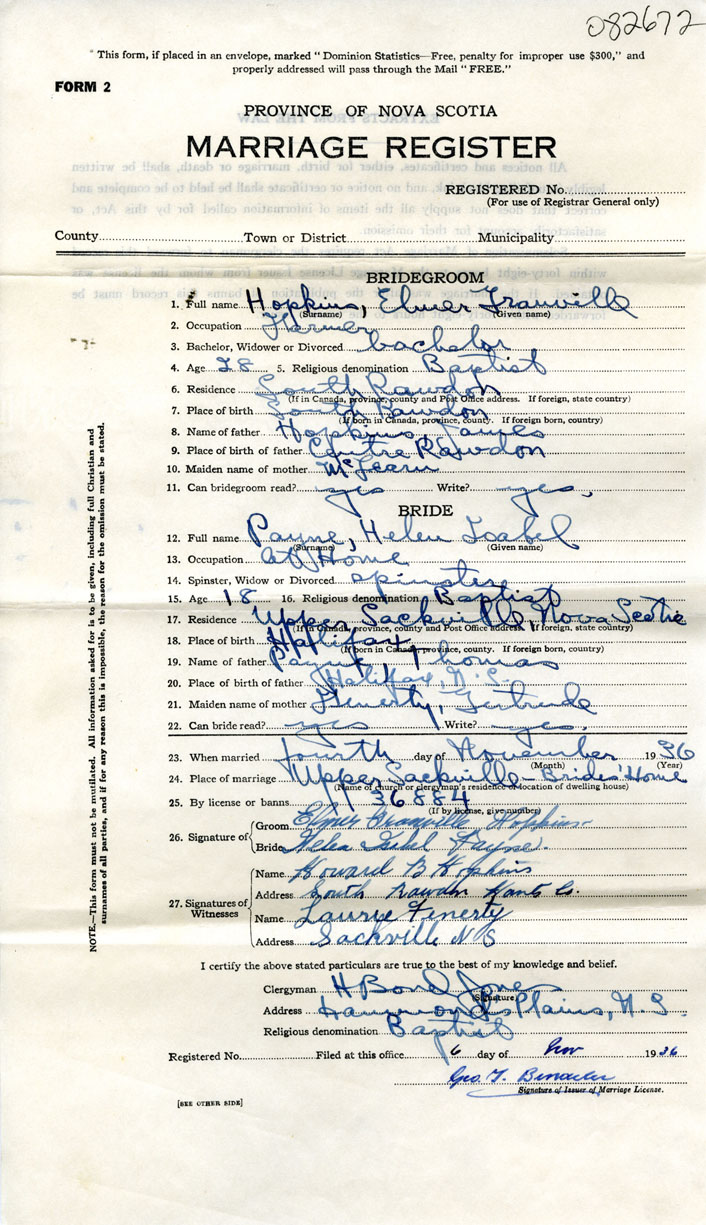 082672
* This form, if placed in an envelope, marked "Dominion Statistics—Free, penalty for improper use $300," and
properly addressed will pass through the Mail "FREE."
FORM 2
PROVINCE OF NOVA SCOTIA
MARRIAGE REGISTER
REGISTERED No.
(For use of Registrar General only)
County Town or District Municipality
BRIDEGROOM
1. Full name Hopkins, Elmer Granville
(Surname) (Given name)
2. Occupation Farmer
3. Bachelor, Widower or Divorced bachelor
4. Age 28 5. Religious denomination Baptist
6. Residence South Rawdon
(If in Canada, province, county and Post Office address. If foreign, state country)
7. Place of birth South Rawdon
(If born in Canada, province, county. If foreign born, country)
8. Name of father Hopkins James
9. Place of birth of father Centre Rawdon
10. Maiden name of mother McLearn
11. Can bridegroom read? yes Write? yes.
BRIDE
12. Full name Payne, Helen Isabel
(Surname) (Given name)
13. Occupation at Home
14. Spinster, Widow or Divorced spinster
15. Age 18 16. Religious denomination Baptist
17. Residence Upper Sackville, Nova Scotia
(If in Canada, province, county and Post Office address. If foreign, state country)
18. Place of birth Halifax
(If born in Canada, province, county. If foreign born, country)
19. Name of father Payne, Thomas
20. Place of birth of father Halifax, N.S.
21. Maiden name of mother Fenerty, Gertrude
22. Can bride read? yes Write? yes.
23. When married fourth day of November 1936
(Month) (Year)
24. Place of marriage Upper Sackville - Brides' Home
(Name of church or clergyman's residence or location of dwelling house)
25. By license or banns 36884
(If by license, give number)
26. Signature of Groom Elmer Granville Hopkins
Bride Helen Isabel Payne.
27. Signatures of Witnesses
Name Howard B Hopkins
Address South Rawdon Hants Co.
Name Laurie Fenerty
Address Sackville NS
I certify the above stated particulars are true to the best of my knowledge and belief.
Clergyman H Bond Jones
(Signature)
Address Hammond's Plains, N.S.
Religious denomination Baptist
Registered No. Filed at this office 6 day of Nov 1936
Geo. T.
Signature of Issuer of Marriage License.
[SEE OTHER SIDE]
NOTE.—This form must not be mutilated. All information asked for is to be given, including full Christian and
surnames of all parties, and if for any reason this is impossible, the reason for the omission must be stated.